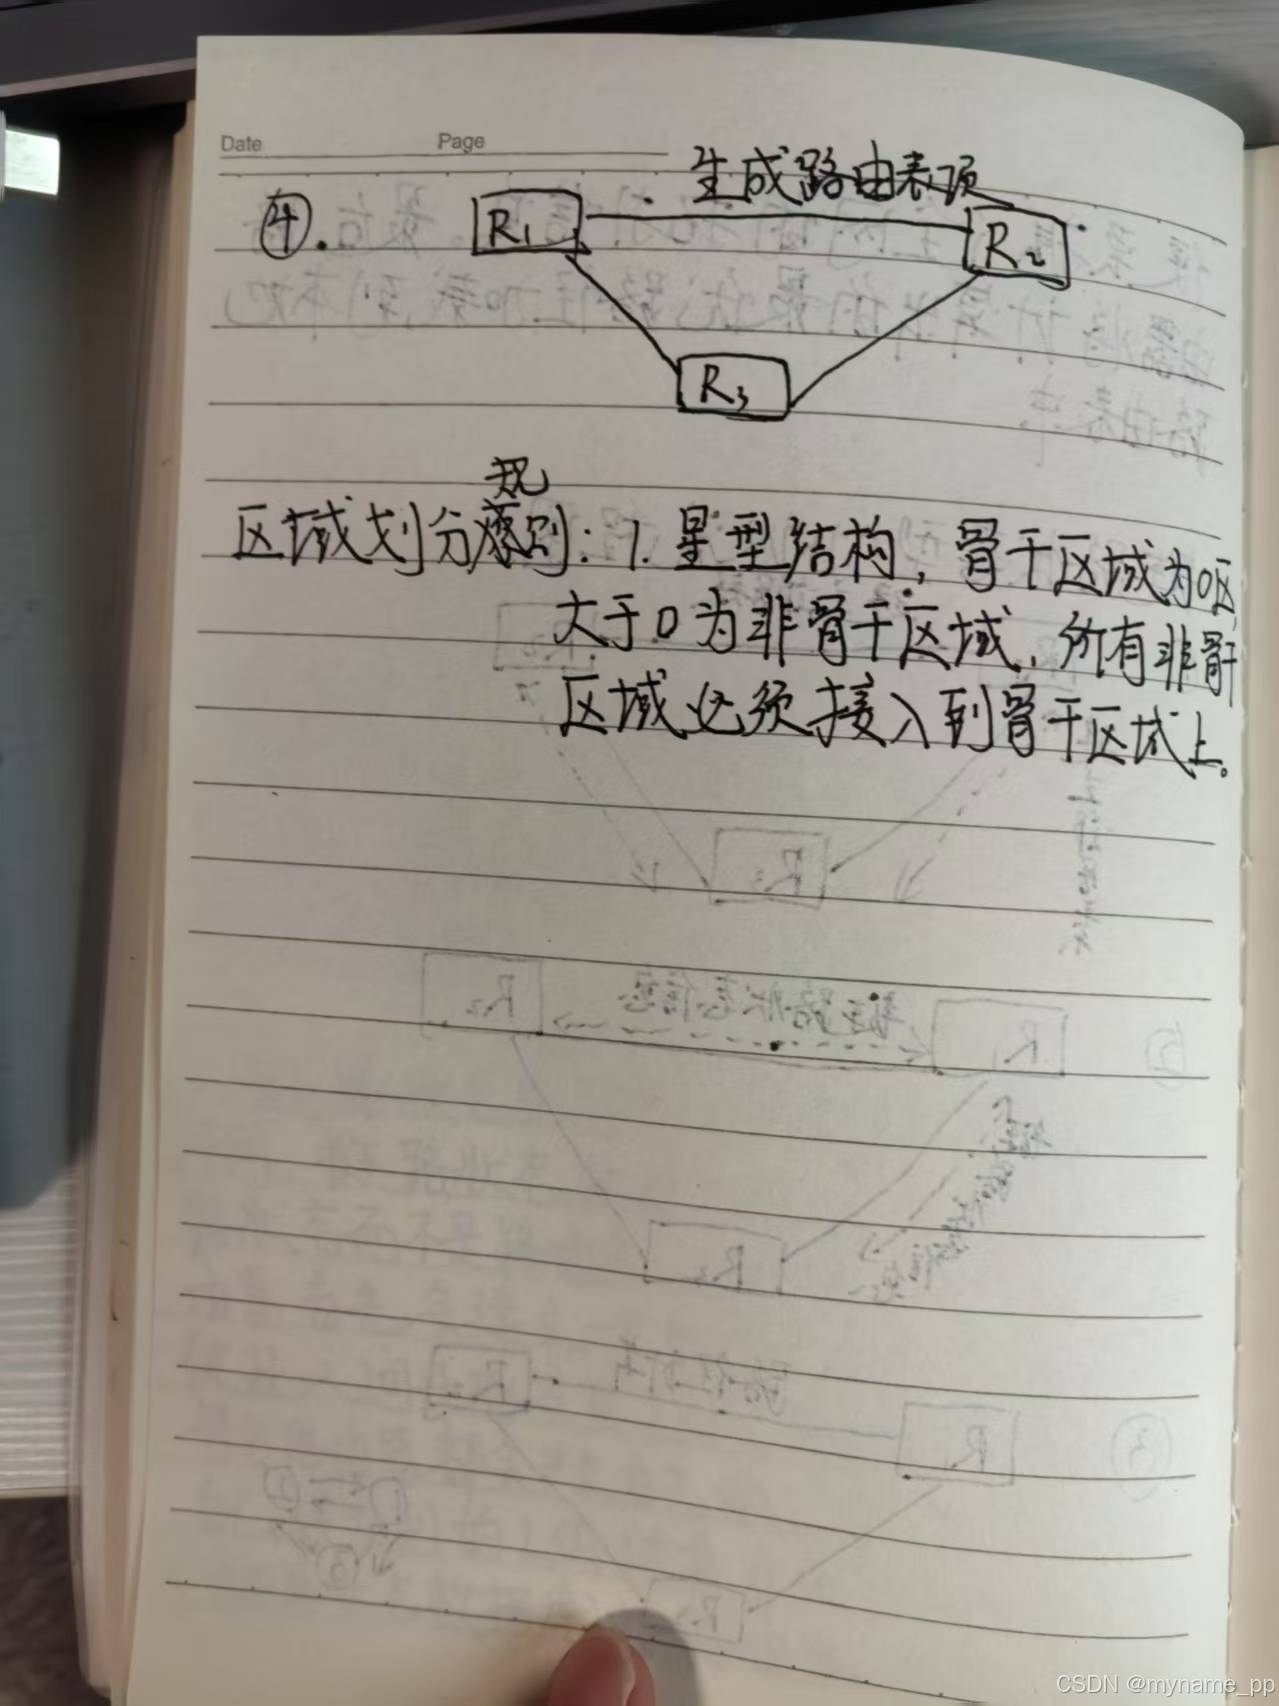 Date
Page
生成路由表项
④.
R1
R2
R3
规
区域划分则:1.星型结构,骨干区域为0区,
大于0为非骨干区域,所有非骨干
区域必须接入到骨干区域上。
CSDN @myname_pp